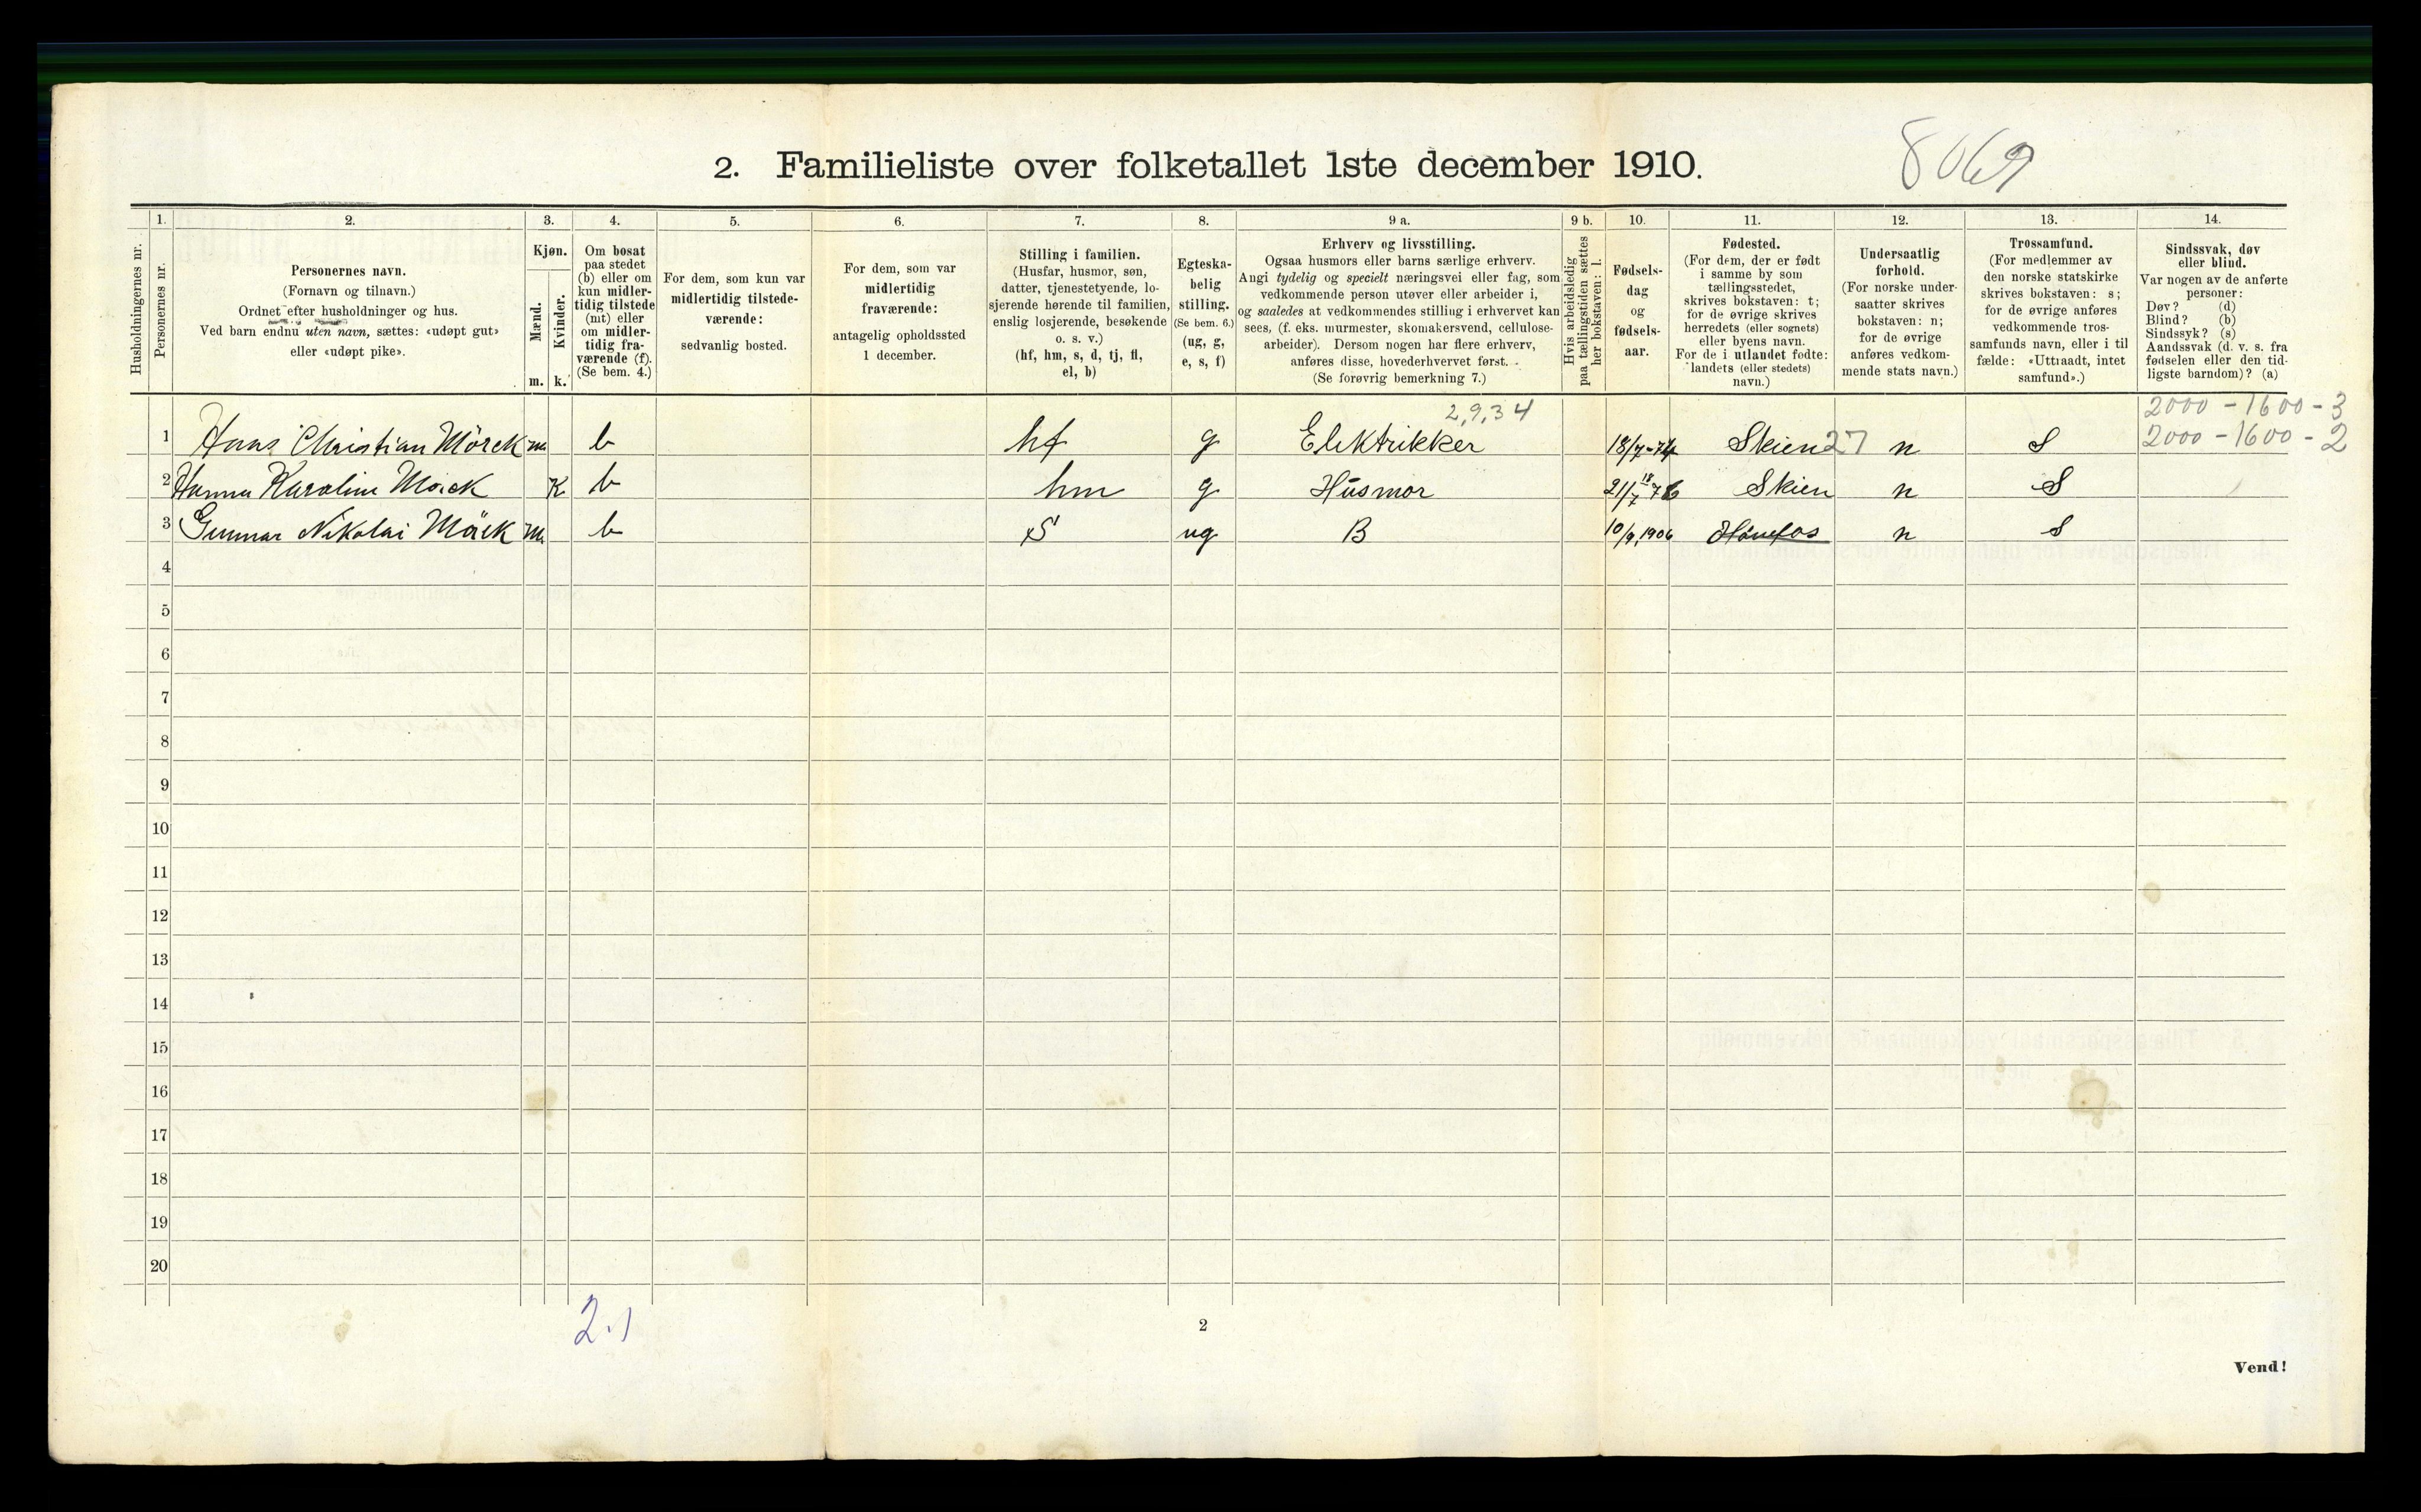 2. Familieliste over folketallet 1ste december 1910.
8069
1. 2. 3. 4. 5. 6. 7. 8. 9 a. 9 b. 10. 11. 12. 13. 14.
Husholdningernes nr.
Personernes nr.
Personernes navn.
(Fornavn og tilnavn.)
Ordnet efter husholdninger og hus.
Ved barn endnu uten navn, sættes: «udøpt gut»
eller «udøpt pike».
Kjøn.
Mænd.
Kvinder.
m. k.
Om bosat
paa stedet
(b) eller om
kun midler-
tidig tilstede
(mt) eller
om midler-
tidig fra-
værende (f).
(Se bem. 4.)
For dem, som kun var
midlertidig tilstede-
værende:
sedvanlig bosted.
For dem, som var
midlertidig
fraværende:
antagelig opholdssted
1 december.
Stilling i familien.
(Husfar, husmor, søn,
datter, tjenestetyende, lo-
sjerende hørende til familien,
enslig losjerende, besøkende
o. s. v.)
(hf, hm, s, d, tj, fl,
el, b)
Egteska-
belig
stilling.
(Se bem. 6.)
(ug, g,
e, s, f)
Erhverv og livsstilling.
Ogsaa husmors eller barns særlige erhverv.
Angi tydelig og specielt næringsvei eller fag, som
vedkommende person utøver eller arbeider i,
og saaledes at vedkommendes stilling i erhvervet kan
sees, (f. eks. murmester, skomakersvend, cellulose-
arbeider). Dersom nogen har flere erhverv,
anføres disse, hovederhvervet først.
(Se forøvrig bemerkning 7.)
Hvis arbeidsledig
paa tællingstiden sættes
her bokstaven: l.
Fødsels-
dag
og
fødsels-
aar.
Fødested.
(For dem, der er født
i samme by som
tællingsstedet,
skrives bokstaven: t;
for de øvrige skrives
herredets (eller sognets)
eller byens navn.
For de i utlandet fødte:
landets (eller stedets)
navn.)
Undersaatlig
forhold.
(For norske under-
saatter skrives
bokstaven: n;
for de øvrige
anføres vedkom-
mende stats navn.)
Trossamfund.
(For medlemmer av
den norske statskirke
skrives bokstaven: s;
for de øvrige anføres
vedkommende tros-
samfunds navn, eller i til
fælde: «Uttraadt, intet
samfund».)
Sindssvak, døv
eller blind.
Var nogen av de anførte
personer:
Døv? (d)
Blind? (b)
Sindssyk? (s)
Aandssvak (d. v. s. fra
fødselen eller den tid-
ligste barndom)? (a)
2,9,34
2000 - 1600 - 3
1 Hans Christian Mörck m b hf g Elektrikker 18/7-74 Skien 27 n S 2000 - 1600 - 2
2 Hanna Karoline Mörck K b hm g Husmor 21/7 18 76 Skien n S
3 Gunnar Nikolai Mörck m b S ug B 10/9 1906 Hönefos n S
4
5
6
7
8
9
10
11
12
13
14
15
16
17
18
19
20
2.1
2
Vend!